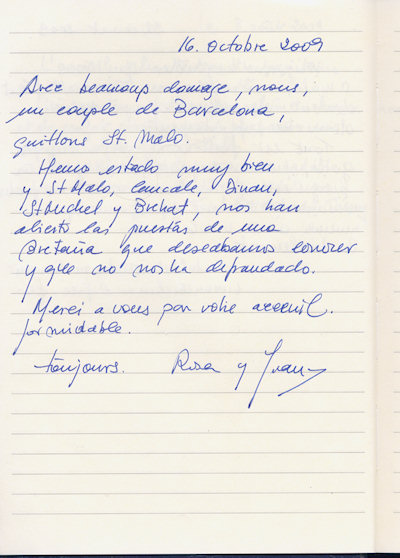 16. octobre 2009
Avec beaucoup domage, nous,
un couple de Barcelona,
quittons St. Malo.
Hemos estado muy bien
y St Malo, Cancale, Dinan,
St Michel y Brehat, nos han
abierto las puertas de una
Bretaña que deseabamos conocer
y que no nos ha defraudado.
Merci a vous por votre acceuil.
formidable.
toujours. Rosa y Juan